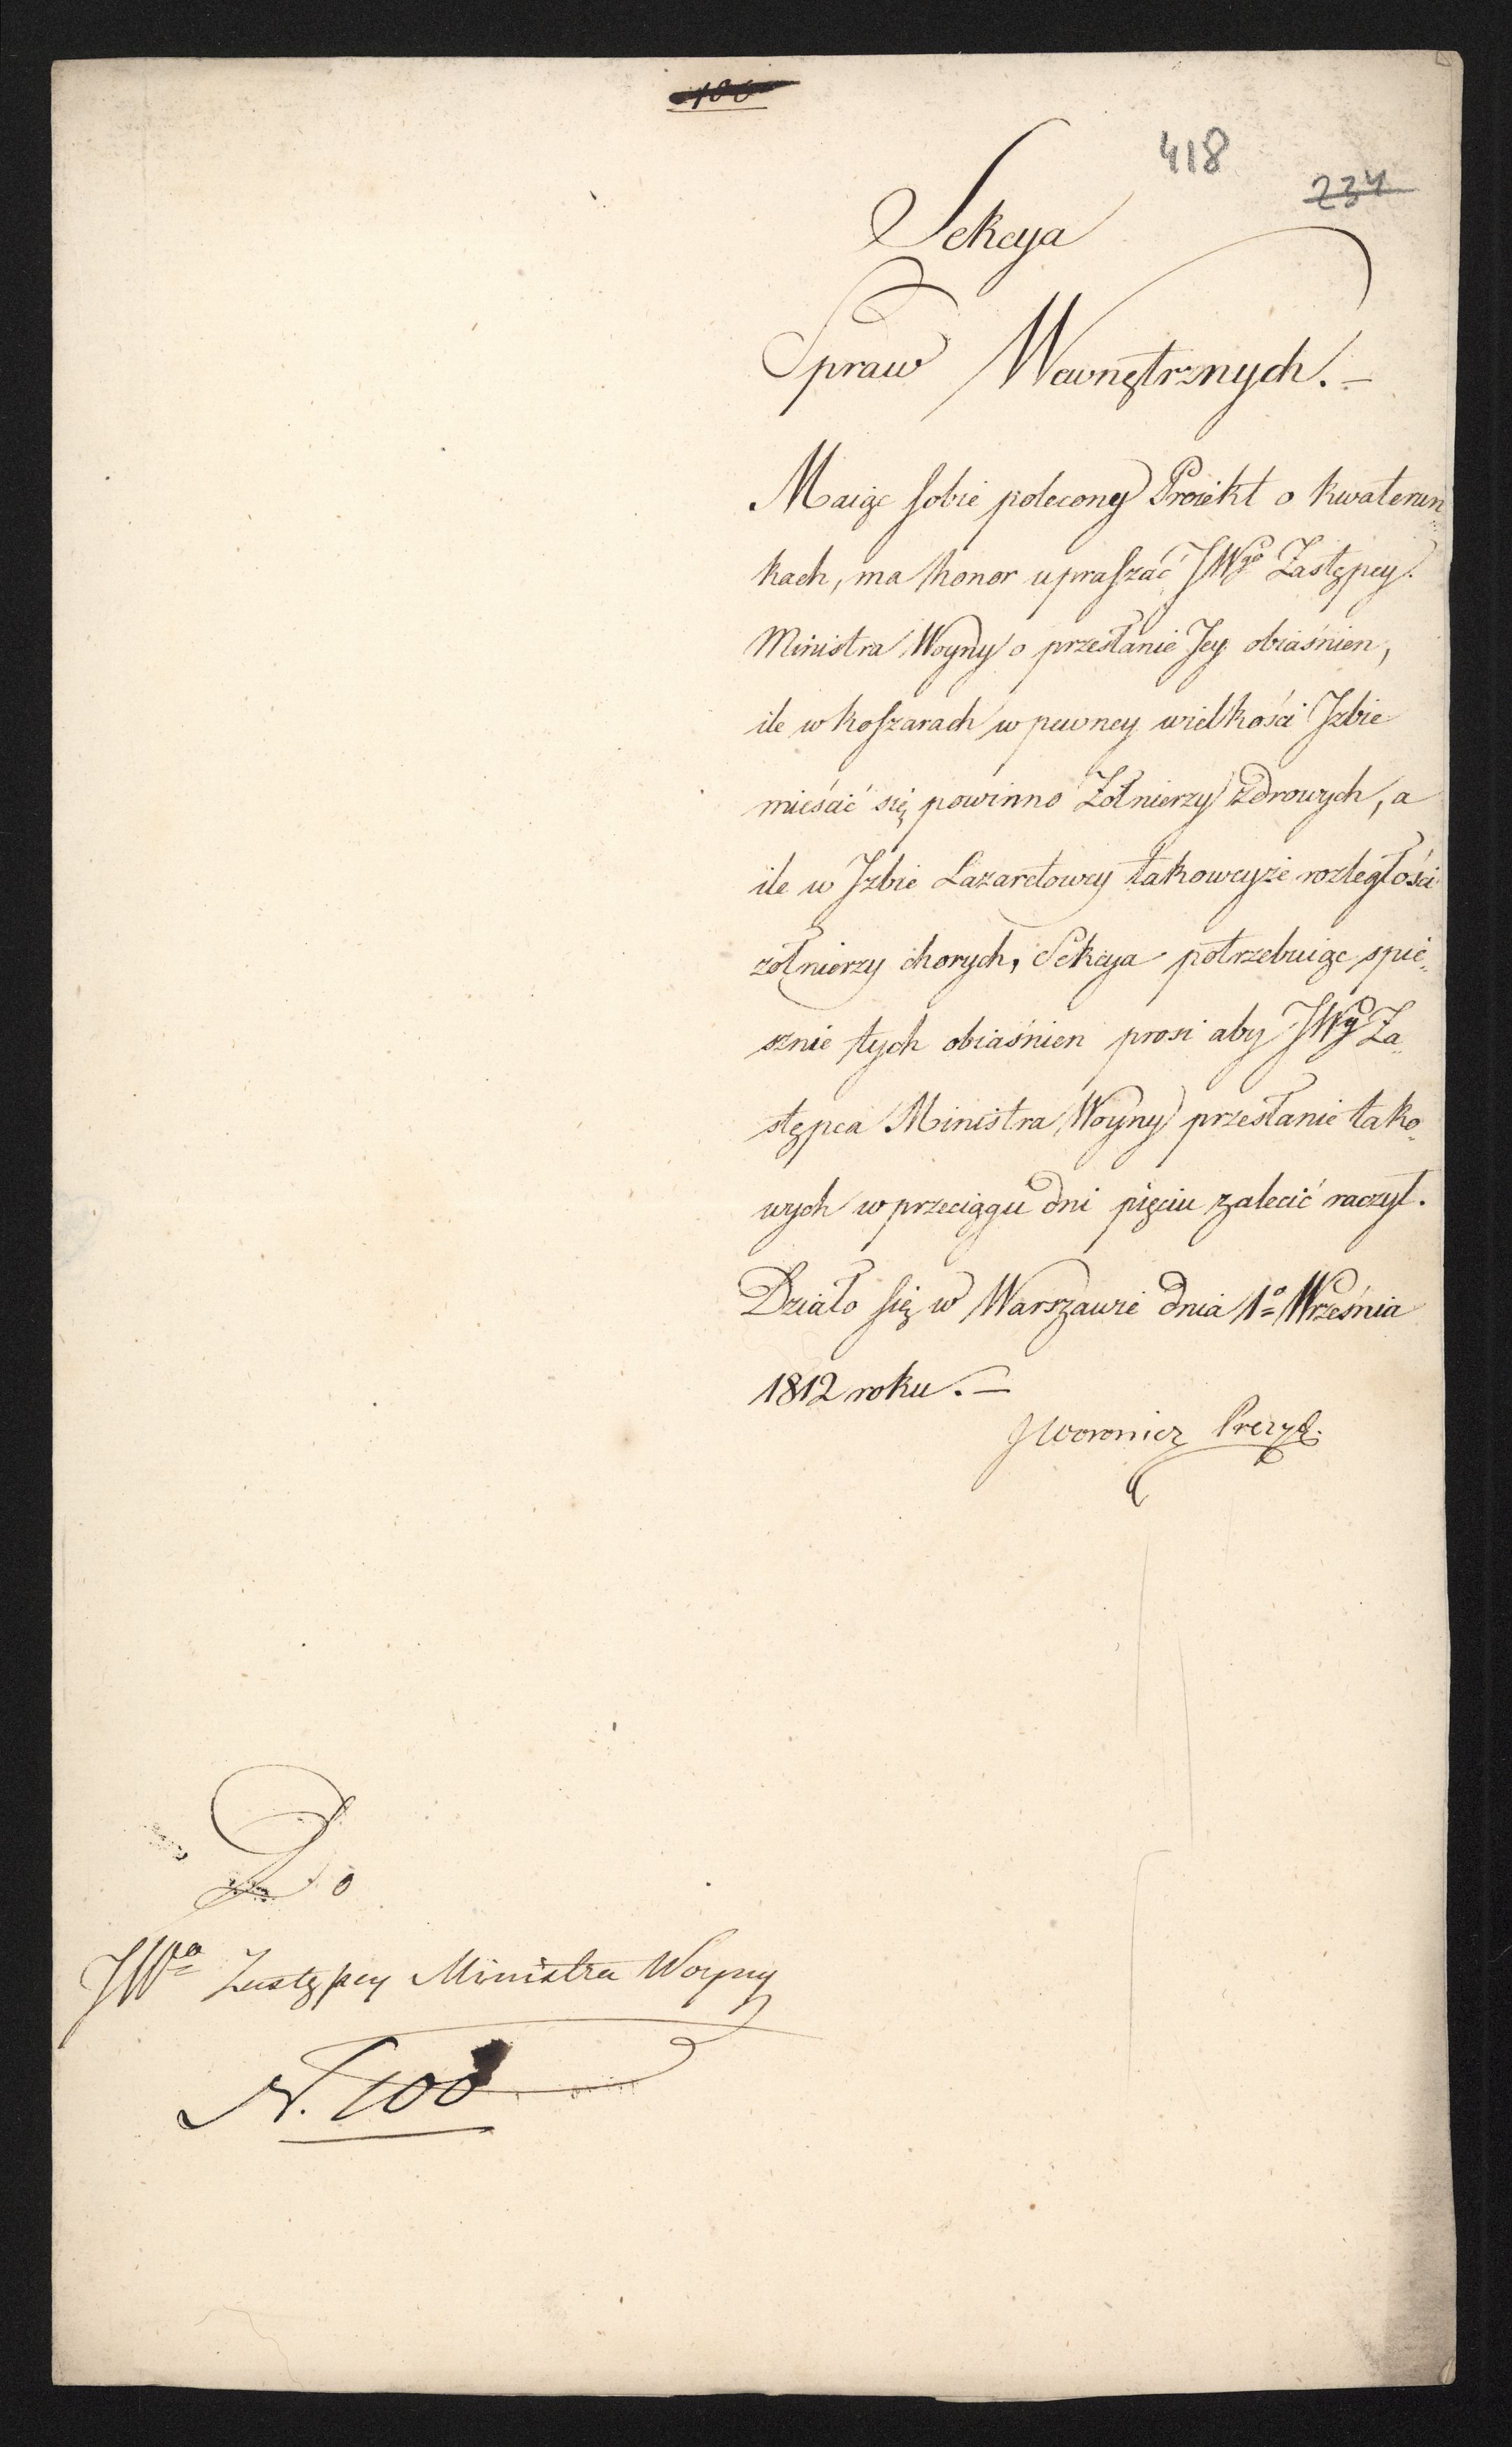 418
234
Sekcya
Spraw Wewnętrznych. —
Maiąc sobie polecony Proiekt o kwaterun„
kach, ma honor upraszać JWgo Zastępcy
Ministra Woyny o przesłanie Jey obiaśnien,
ile w koszarach w pewney wielkości Izbie
mieścić się powinno Żołnierzy zdrowych, a
ile w Izbie Lazaretowey takoweyże rozległości
żołnierzy chorych, Sekcya potrzebuiąc spie„
sznie tych obiaśnien prosi aby JWy Za„
stępca Ministra Woyny przesłanie tako„
wych w przeciągu dni pięciu zalecić raczył.
Działo się w Warszawie dnia 1º Września
1812 roku. —
J Woronicz Prezyd.
Do
JWo Zastępcy Ministra Woyny
N.